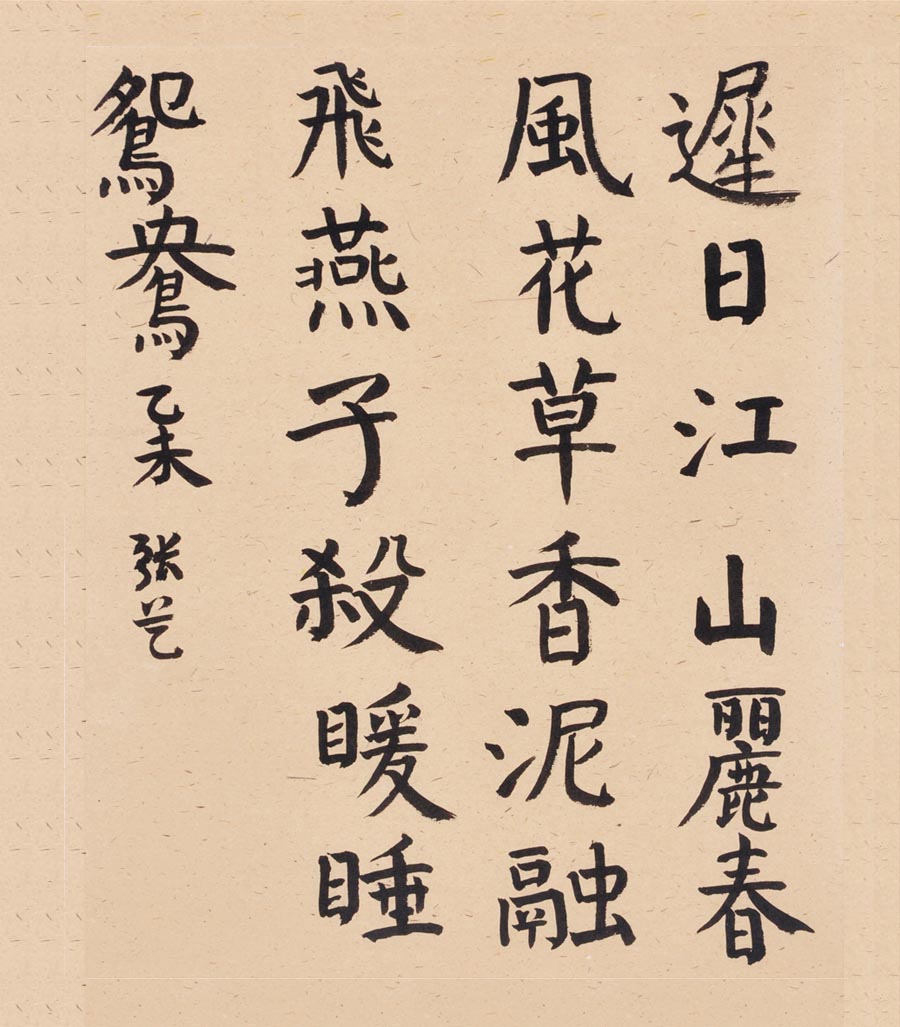 遲日江山麗春
風花草香泥融
飛燕子殺暖睡
鴛鴦乙未 张艺